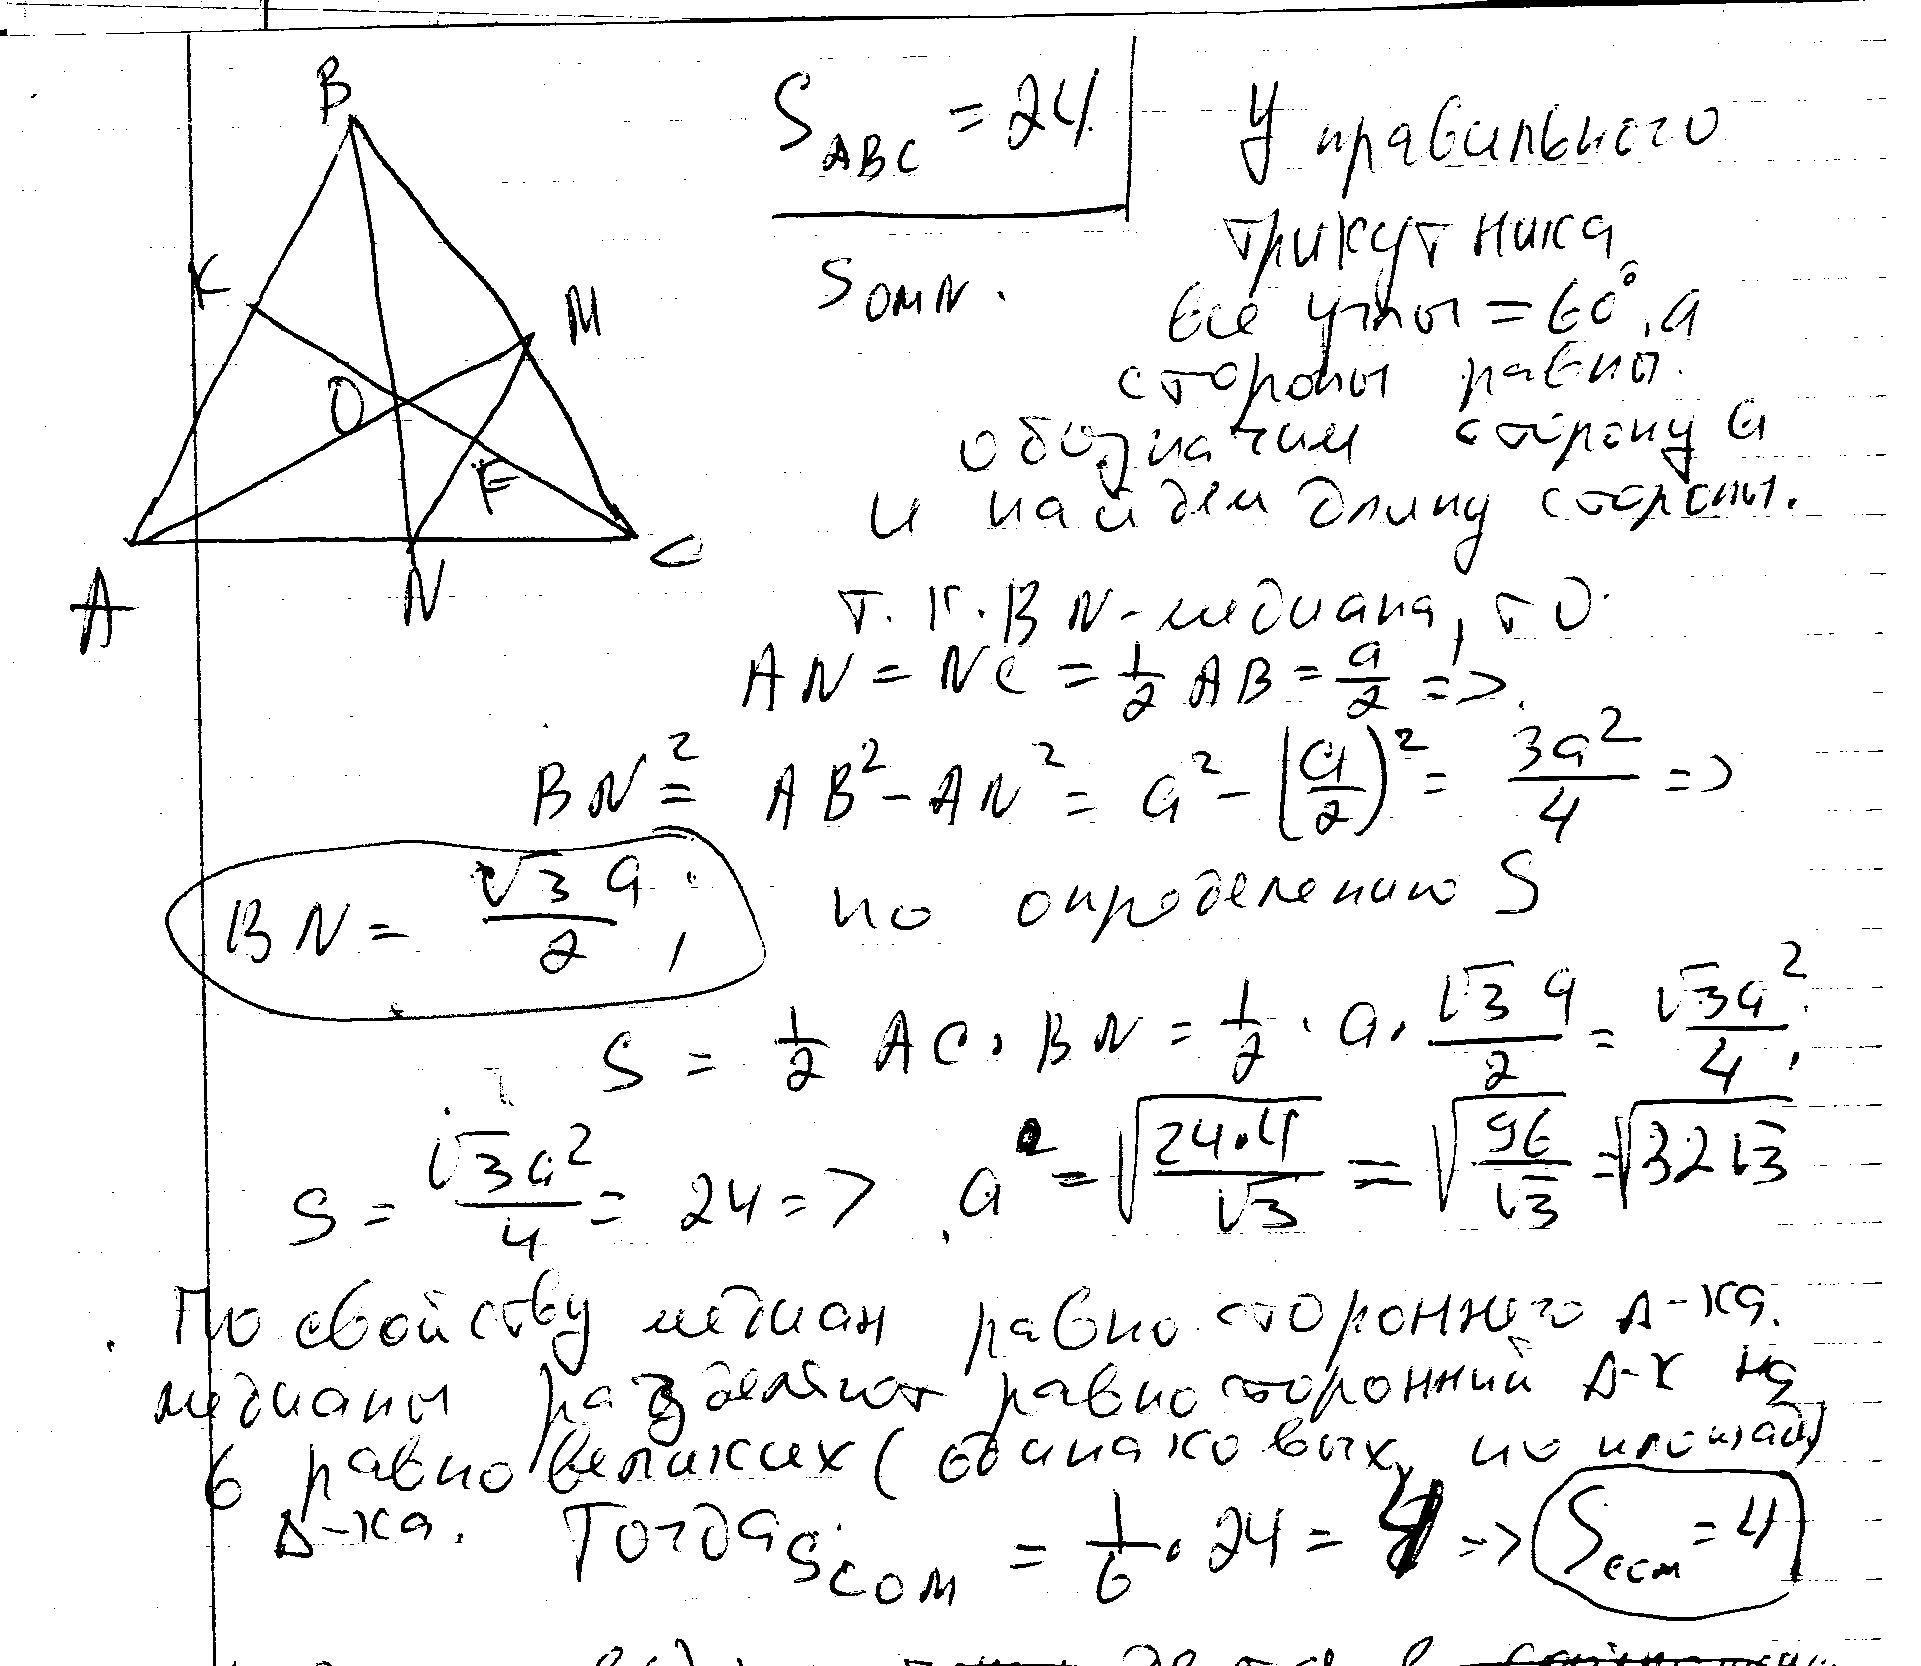 B
S_ABC = 24
У правильного
трикутника
K
M
S_OMN.
все углы = 60°, а
O
стороны равны.
обозначим сторону a
F
и найдем длину стороны.
A
N
C
т.к. BN-медиана, то
AN = NC = 1/2 AB = a/2 =>
BN² = AB² - AN² = a² - (a/2)² = 3a²/4 =>
BN = √3 a/2; по определению S
S = 1/2 AC · BN = 1/2 · a · √3 a/2 = √3a²/4;
S = √3a²/4 = 24 => a = √(24·4/√3) = √(96/√3) = √(32√3)
По свойству медиан равностороннего Δ-ка.
медианы разделяют равносторонний Δ-к на
6 равновеликих (одинаковых по площади)
Δ-ка. Тогда S_COM = 1/6 · 24 = 4 => = 4